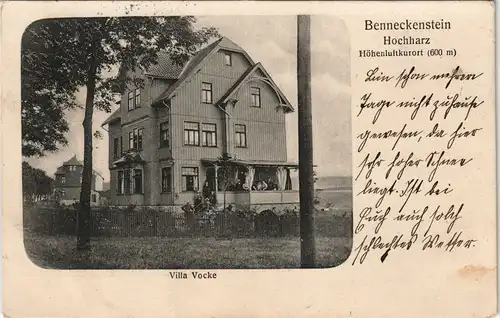 Benneckenstein
Hochharz
Höhenluftkurort (600 m)
Bin schon mehrere
Tage nicht zuhause
gewesen, da hier
sehr hoher Schnee
liegt. Ist bei
Euch auch solch
schlechtes Wetter.
Villa Vocke